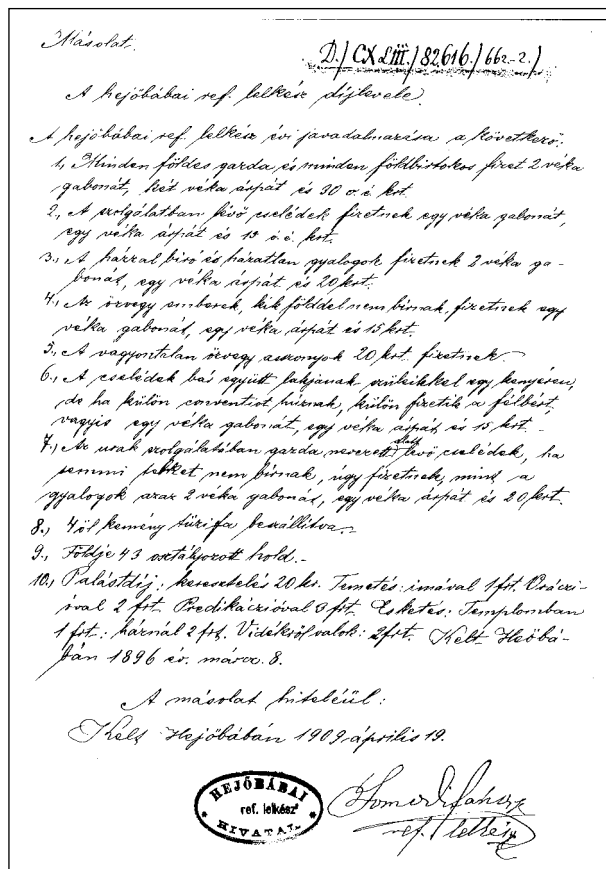 Másolat.
D./ CXLIII./ 82616./ 662.-2./
A hejőbábai ref. lelkész díjlevele.
A hejőbábai ref. lelkész évi javadalmazása a következő:
1., Minden földes gazda és minden földbirtokos fizet 2 véka
gabonát, két véka árpát és 30 o. é. krt.
2., A szolgálatban lévő cselédek fizetnek egy véka gabonát,
egy véka árpát és 15 o. é. krt.
3., A házzal biró és házatlan gyalogok fizetnek 2 véka ga-
bonát, egy véka árpát és 20 krt.
4., Az özvegy emberek, kik földdel nem birnak, fizetnek egy
véka gabonát, egy véka árpát és 15 krt.
5., A vagyontalan özvegy asszonyok 20 krt. fizetnek
6., A cselédek bár együtt lakjanak szüleikkel egy kenyéren,
de ha külön conventiot húznak, külön fizetik a félbért,
vagyis egy véka gabonát, egy véka árpát és 15 krt.
7., Az urak szolgálatában gazda nevezet alatt lévő cselédek, ha
semmi telket nem birnak, úgy fizetnek, mint a
gyalogok azaz 2 véka gabonát, egy véka árpát és 20 krt.
8., 4 öl kemény tűzifa beszállitva.
9., Földje 43 osztályozott hold.-
10., Palástdíj: keresztelés 20 kr. Temetés: imával 1 frt. Oráczi-
óval 2 frt. Predikáczióval 3 frt. Esketés: Templomban
1 frt.: háznál 2 frt. Vidékről valók: 2 frt. Kelt Hejőbá-
bán 1896 év. márcz. 8.
A másolat hiteléül:
Kelt Hejőbábán 1909 április 19.
HEJŐBÁBAI
ref. lelkész
HIVATAL
ref. lelkész